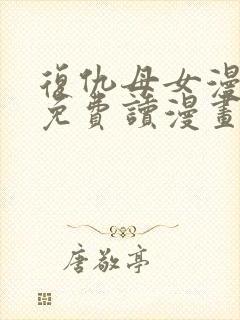 復仇母女漫
免費讀漫畫
唐敬亭